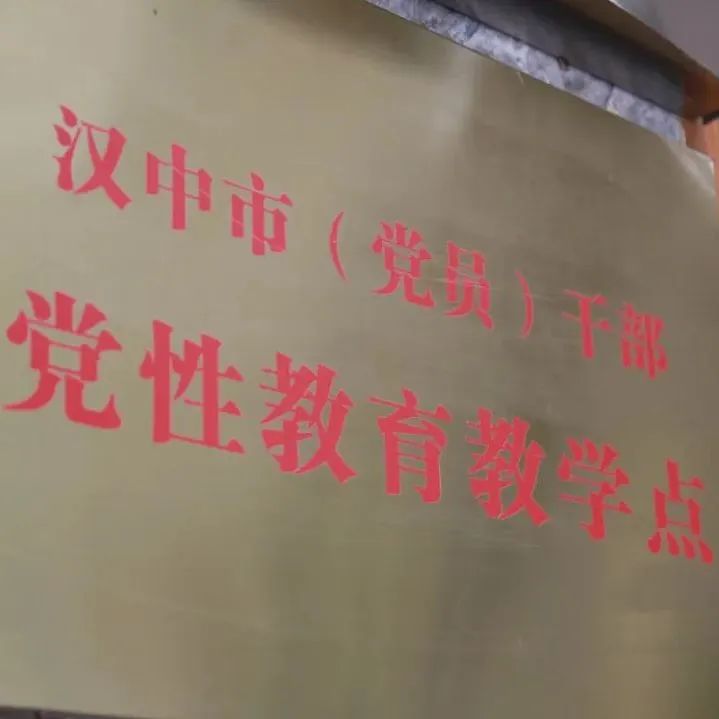 汉中市（党员）干部
党性教育教学点